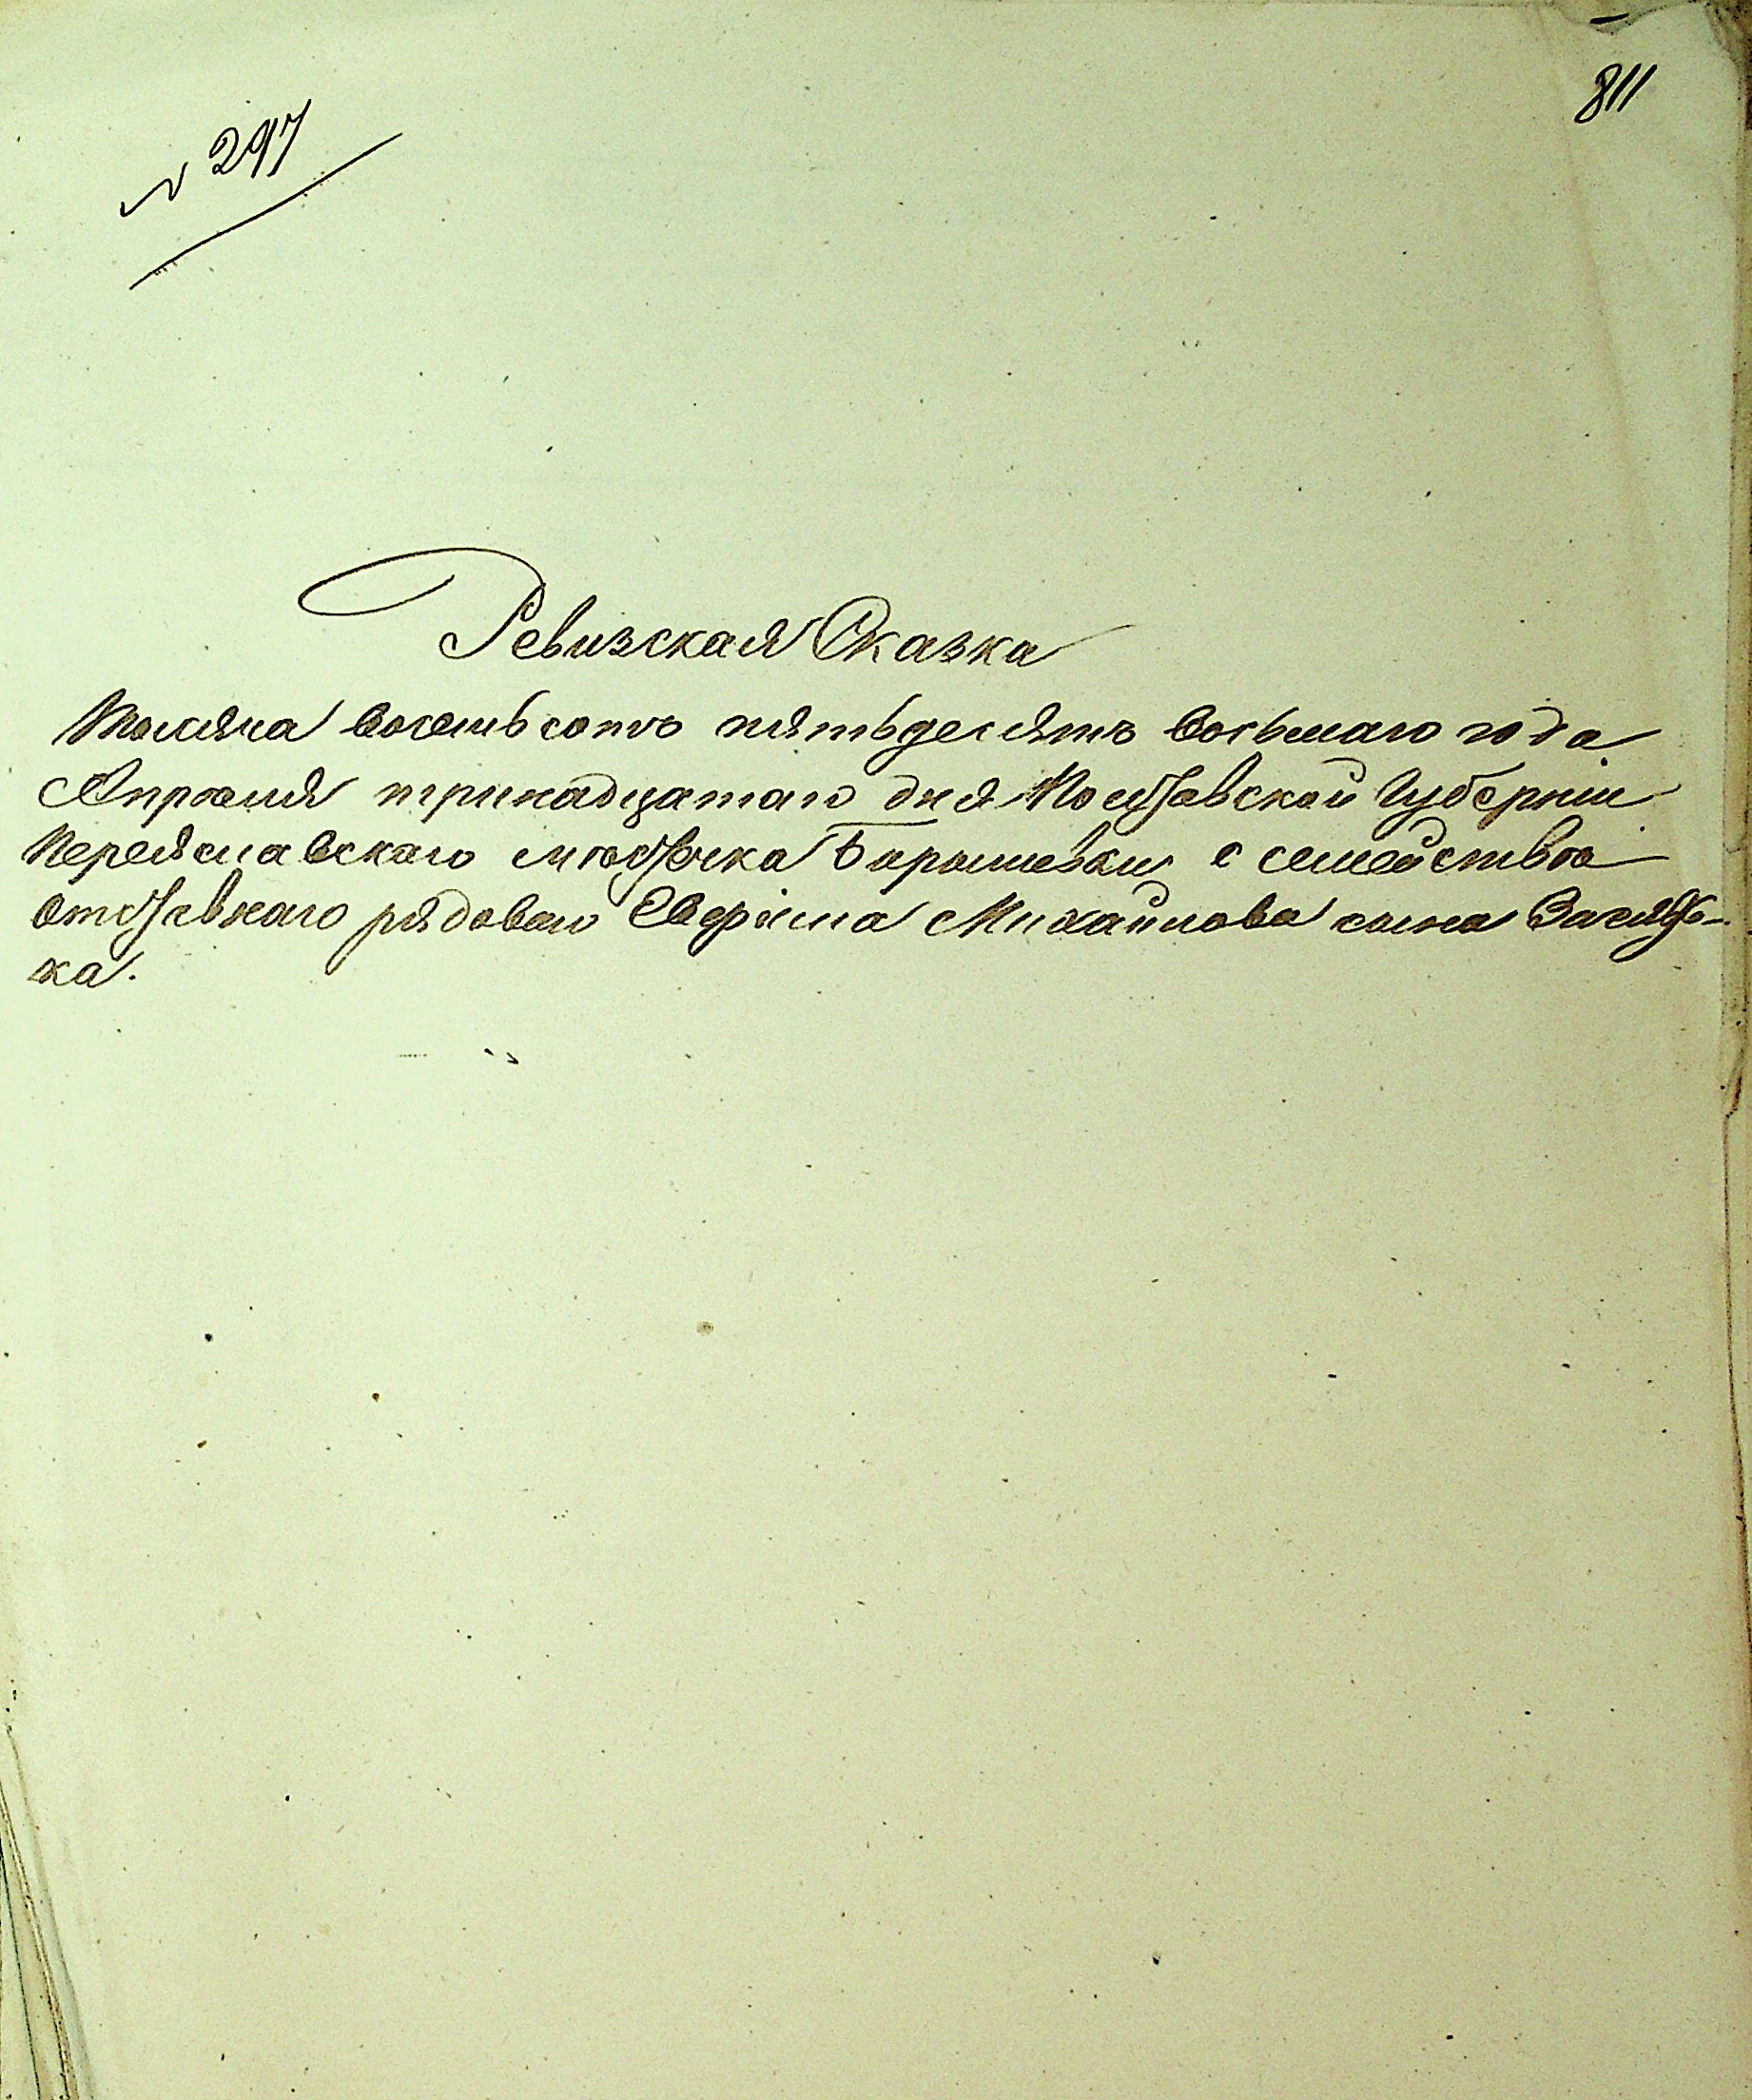 811
№ 297
Ревизская Сказка
Тысяча восемьсотъ пятьдесятъ восьмаго года
Апрѣля тринадцатаго дня Полтавской Губерніи
Переяславскаго мѣстечка Барышевки о семействѣ
отставнаго рядоваго Евфима Михайлова сына
ка.